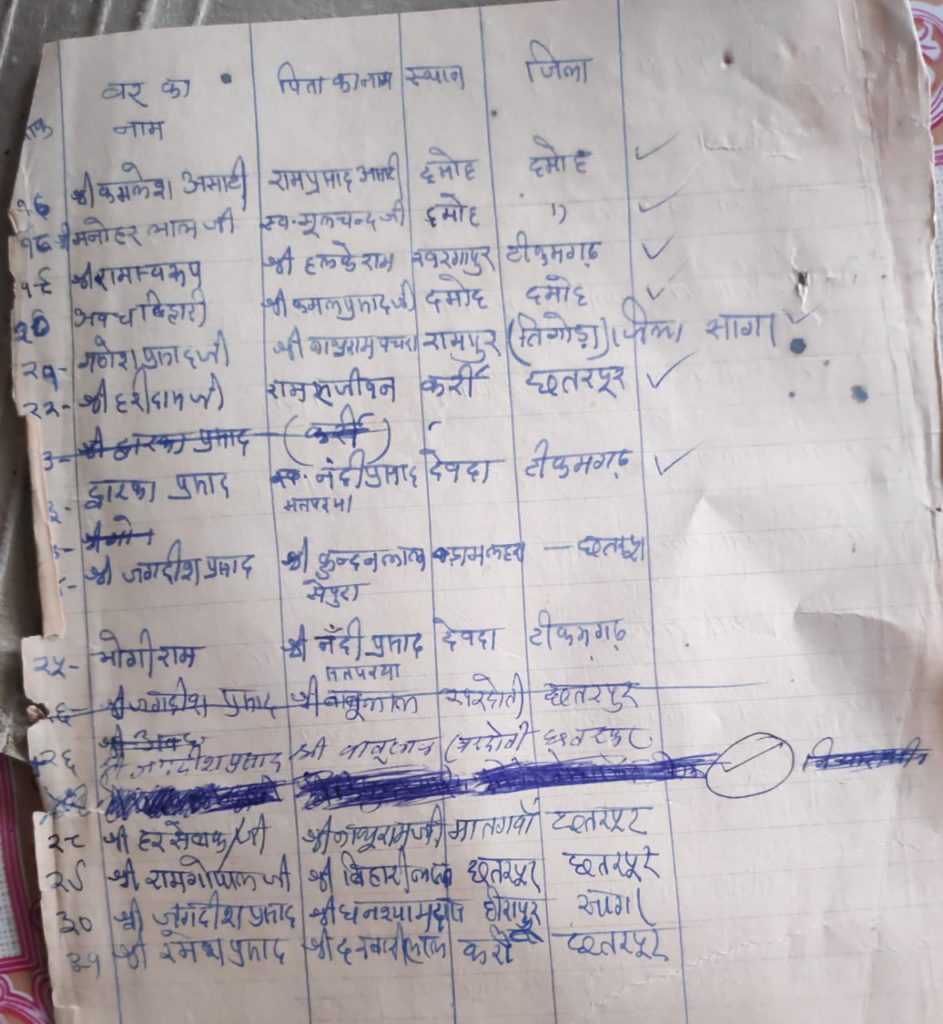 वर का पिता का नाम स्थान जिला
नाम
१७ श्री कमलेश असाटी रामप्रसाद असाटी दमोह दमोह ✓
१८ श्री मनोहर लाल जी स्व. मूलचन्द जी दमोह 〃 ✓
१९ श्री रामस्वरूप श्री हल्केराम खरगापुर टीकमगढ़ ✓
२० अवध बिहारी श्री कमलप्रसाद जी दमोह दमोह ✓
२१- गणेश प्रसाद जी श्री बाबुराम रामपुर (तिगोड़ा) जिला सागर ✓
२२- श्री हरीदास जी रामसजीवन कर्री छतरपुर ✓
श्री द्वारका प्रसाद (कर्री)
द्वारका प्रसाद स्व. नंदी प्रसाद देवदा टीकमगढ़ ✓
श्री जगदीश प्रसाद श्री कुन्दनलाल बड़ामलहरा — छतरपुर
सेपुरा
२५- मोगीराम श्री नंदी प्रसाद देवदा टीकमगढ़
२६- श्री जगदीश प्रसाद श्री बाबूलाल छतरपुर
२६ श्री जगदीश प्रसाद श्री बाबूलाल छतरपुर
२८ श्री हरसेवक जी श्री नाथुराम जी मातगवाँ छतरपुर
२९ श्री रामगोपाल जी श्री बिहारीलाल छतरपुर छतरपुर
३० श्री जगदीश प्रसाद श्री घनश्यामदास हीरापुर सागर
३१ श्री रमेश प्रसाद श्री दरबारीलाल कर्री छतरपुर